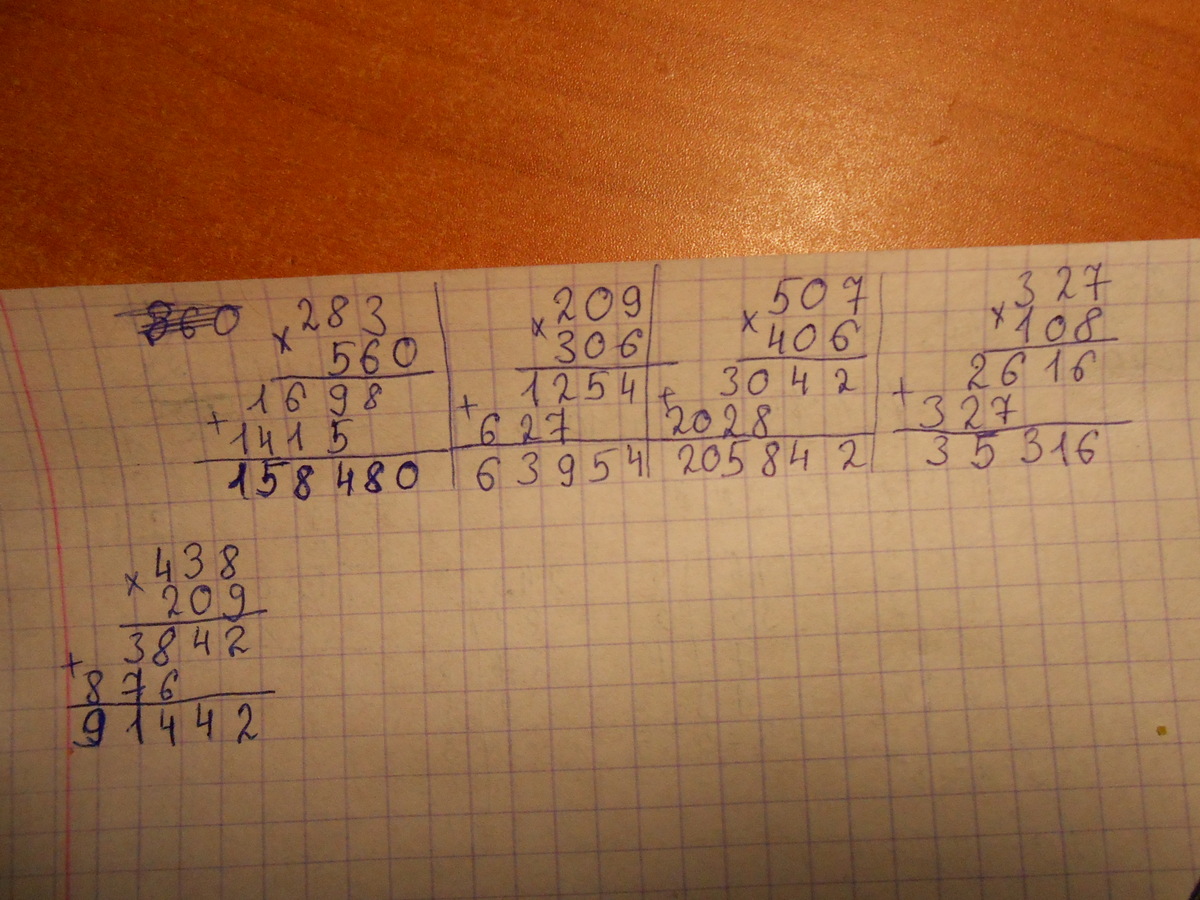 860
283
× 560
1698
+ 1415
158480
209
× 306
1254
+ 627
63954
507
× 406
3042
+ 2028
205842
327
× 108
2616
+ 327
35316
438
× 209
3842
+ 876
91442